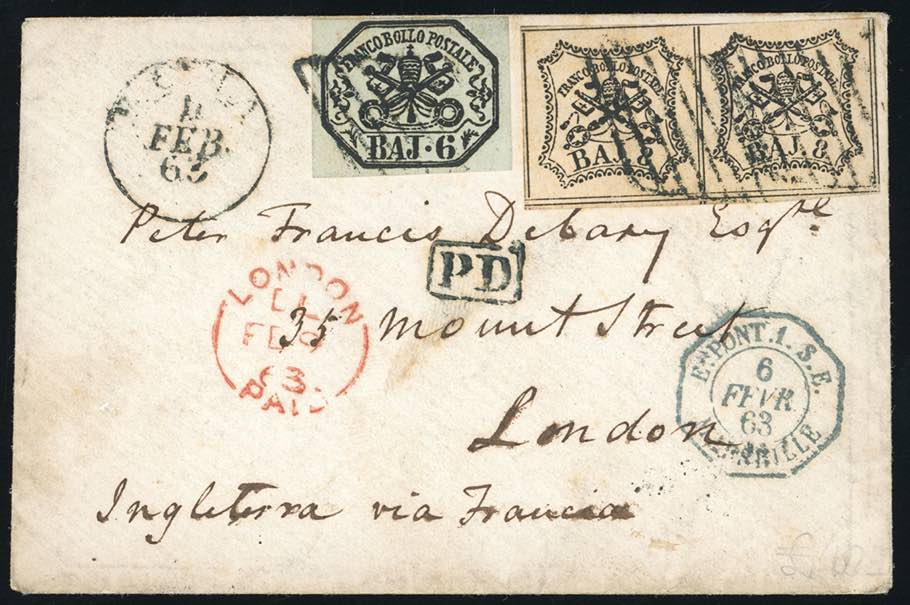 FRANCO BOLLO POSTALE
BAJ. 6
FRANCO BOLLO POSTALE
BAJ. 8
FRANCO BOLLO POSTALE
BAJ. 8
FEB.
63
Peter Francis Debary Esqre
PD
LONDON
FE 9
63
PAID
35 Mount Street
E. PONT. 1. S. E.
6
FEVR
63
London
Ingleterra via Francia